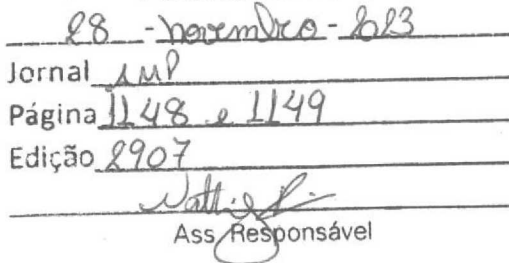 28 - novembro - 2023
Jornal AMP
Página 1148 e 1149
Edição 2907
Ass. Responsável